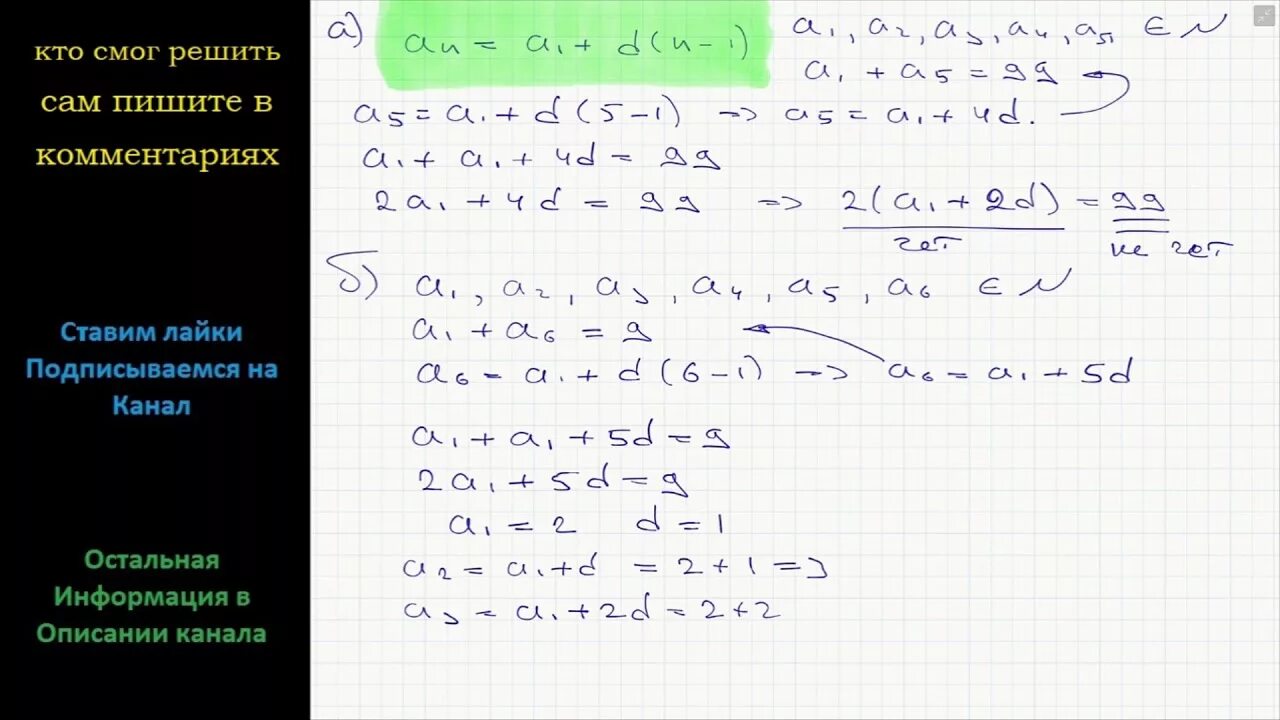 кто смог решить
сам пишите в
комментариях
Ставим лайки
Подписываемся на
Канал
Остальная
Информация в
Описании канала
а) an = a1 + d(n-1)
a1, a2, a3, a4, a5, ∈ N
a1 + a5 = 99
a5 = a1 + d(5-1) => a5 = a1 + 4d.
a1 + a1 + 4d = 99
2a1 + 4d = 99 => 2(a1 + 2d) = 99
чет не чет
б) a1, a2, a3, a4, a5, a6 ∈ N
a1 + a6 = 9
a6 = a1 + d(6-1) => a6 = a1 + 5d
a1 + a1 + 5d = 9
2a1 + 5d = 9
a1 = 2 d = 1
a2 = a1 + d = 2 + 1 = 3
a3 = a1 + 2d = 2 + 2